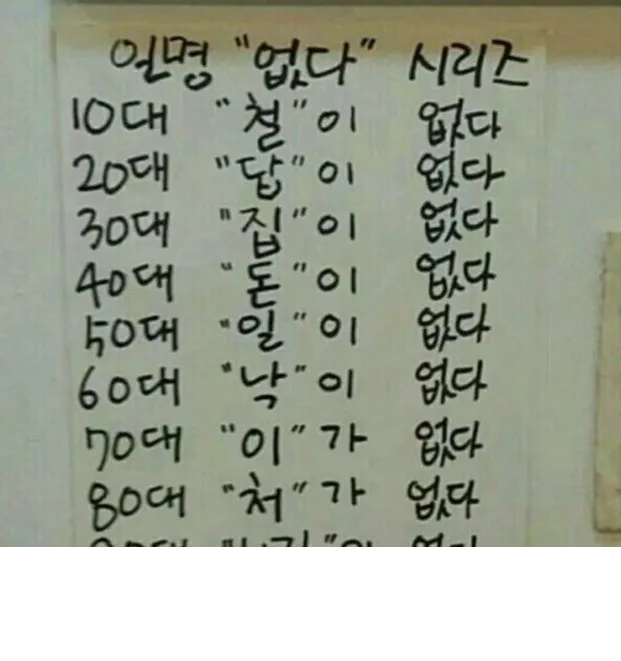 일명 "없다" 시리즈
10대 "철"이 없다
20대 "답"이 없다
30대 "집"이 없다
40대 "돈"이 없다
50대 "일"이 없다
60대 "낙"이 없다
70대 "이"가 없다
80대 "처"가 없다